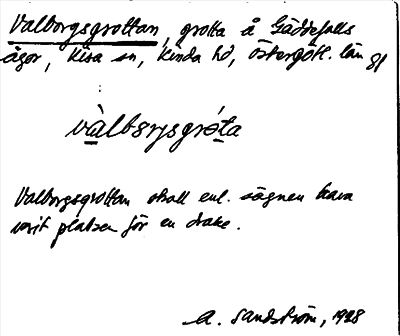 Valborgsgrottan, grotta å Gäddefalls
ägor, Kisa sn, Kinda hd, Östergötl. län
vàlbɔrjsgrót̲a
Valborgsgrottan skall enl. sägnen hava
varit platsen för en drake.
A. Sandström, 1928